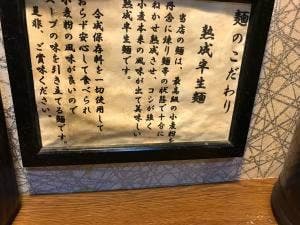 麺のこだわり
熟成半生麺
当店の麺は、最高級の小麦粉を
丹念に練り麺帯の状態で十分に
ねかせ熟成させ、コシが強く
小麦本来の風味が出て美味しい
熟成半生麺です。
合成保存料を一切使用して
おらず安心して食べられ
小麦粉の風味が良いので
スープの味を引き立てる麺です。
是非、ご賞味ください。